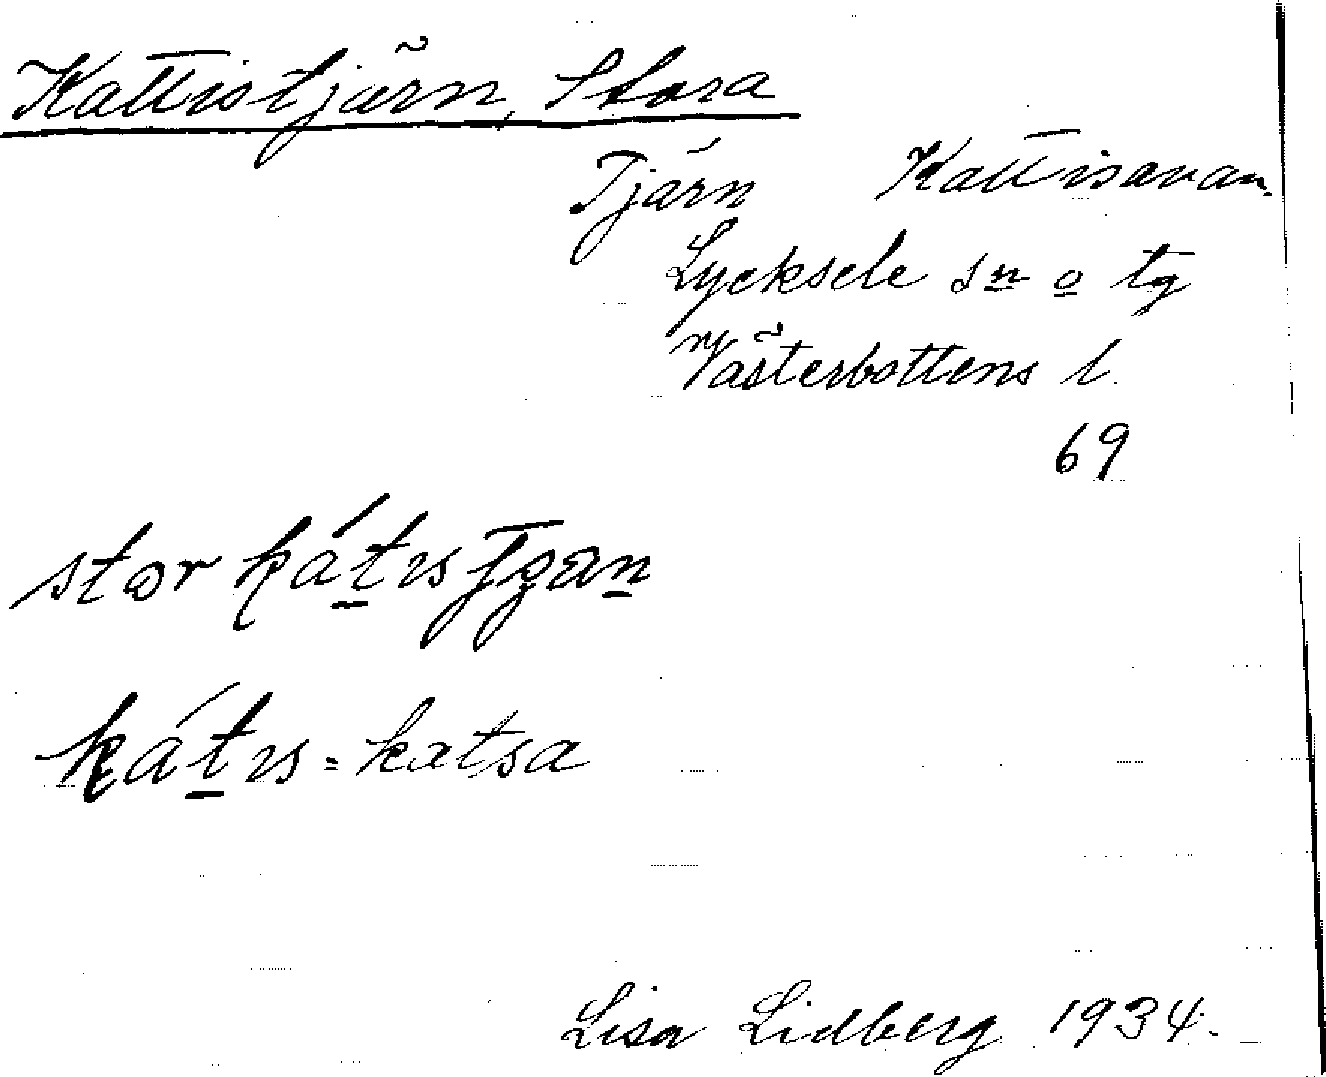 Kattistjärn, Stora
Tjärn Kattisavan.
Lycksele sn o tg
Västerbottens l.
69
stor kátıs
kátıs = katsa
Lisa Lidberg 1934.